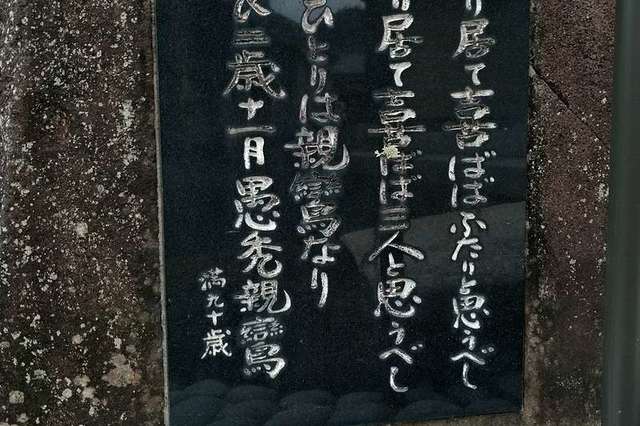 り居て喜ばばふたりと思うべし
り居て喜ばば三人と思うべし
ひとりは親鸞なり
二歳十一月 愚禿親鸞
満九十歳